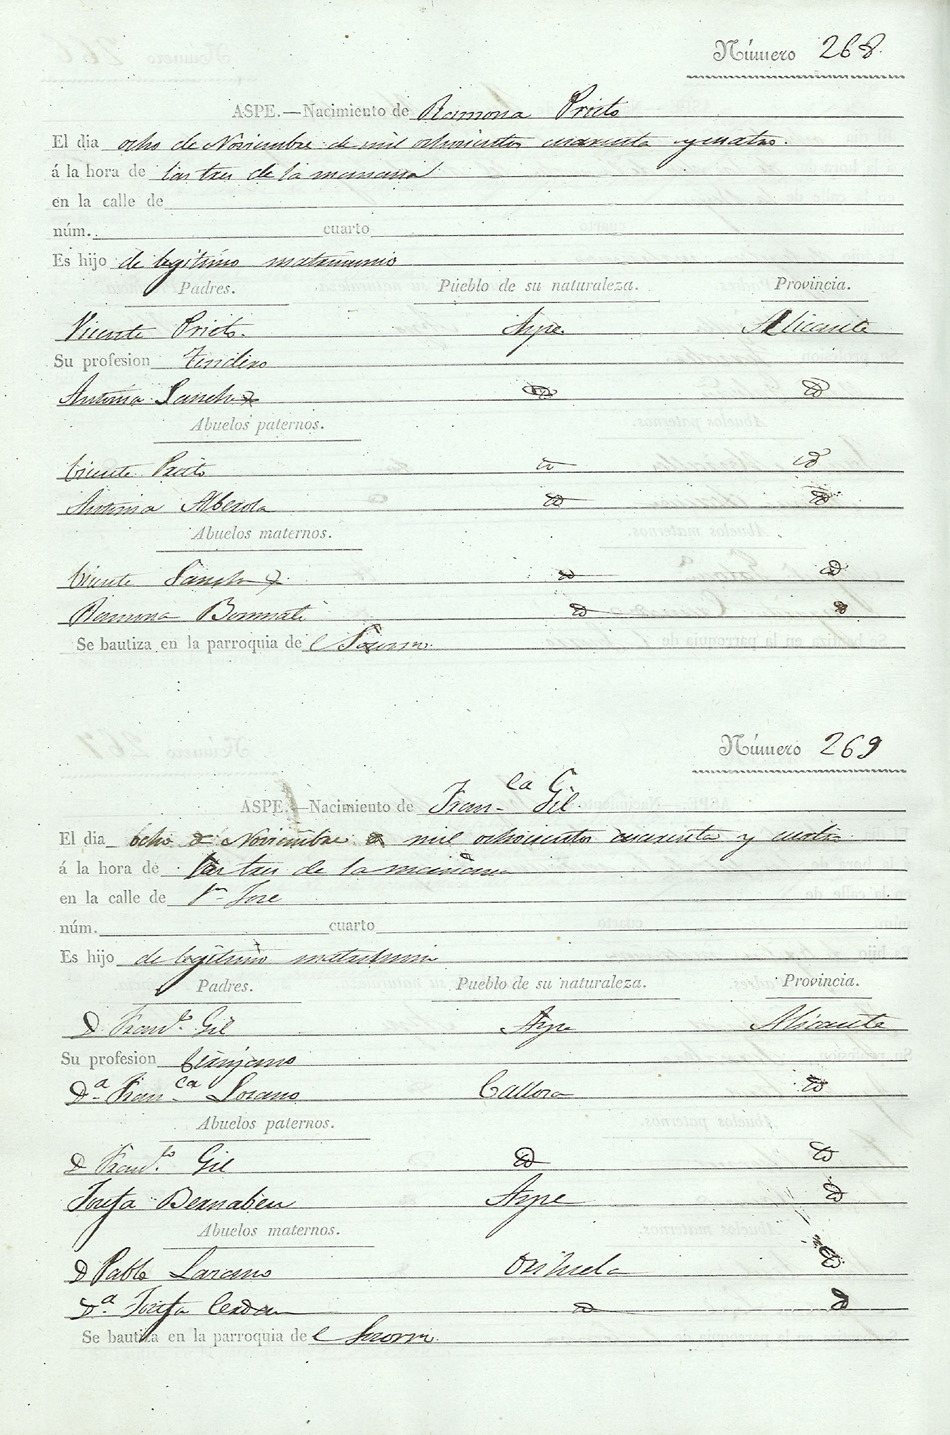 Número 268
ASPE.—Nacimiento de Ramona Prieto
El dia ocho de Noviembre de mil ochocientos cuarenta y cuatro.
á la hora de las tres de la mañana
en la calle de
núm. cuarto
Es hijo de legitimo matrimonio
Padres. Pueblo de su naturaleza. Provincia.
Vicente Prieto. Aspe Alicante
Su profesion Tendero
Antonia Sanchez id id
Abuelos paternos.
Vicente Prieto id id
Antonia Alberola id id
Abuelos maternos.
Vicente Sanchez id id
Ramona Bonmati id id
Se bautiza en la parroquia de el Socorro.
Número 269
ASPE.—Nacimiento de Fran.ca Gil
El dia ocho de Noviembre de mil ochocientos cuarenta y cuatro
á la hora de las tres de la mañana
en la calle de Sn Jose
núm. cuarto
Es hijo de legitimo matrimonio
Padres. Pueblo de su naturaleza. Provincia.
D Fran.co Gil Aspe Alicante
Su profesion Cirujano
D.a Fran.ca Lozano Callosa id
Abuelos paternos.
D Fran.co Gil id id
Josefa Bernabeu Aspe id
Abuelos maternos.
D Pablo Lozano Orihuela id
D.a Josefa Cerdan id id
Se bautiza en la parroquia de el Socorro